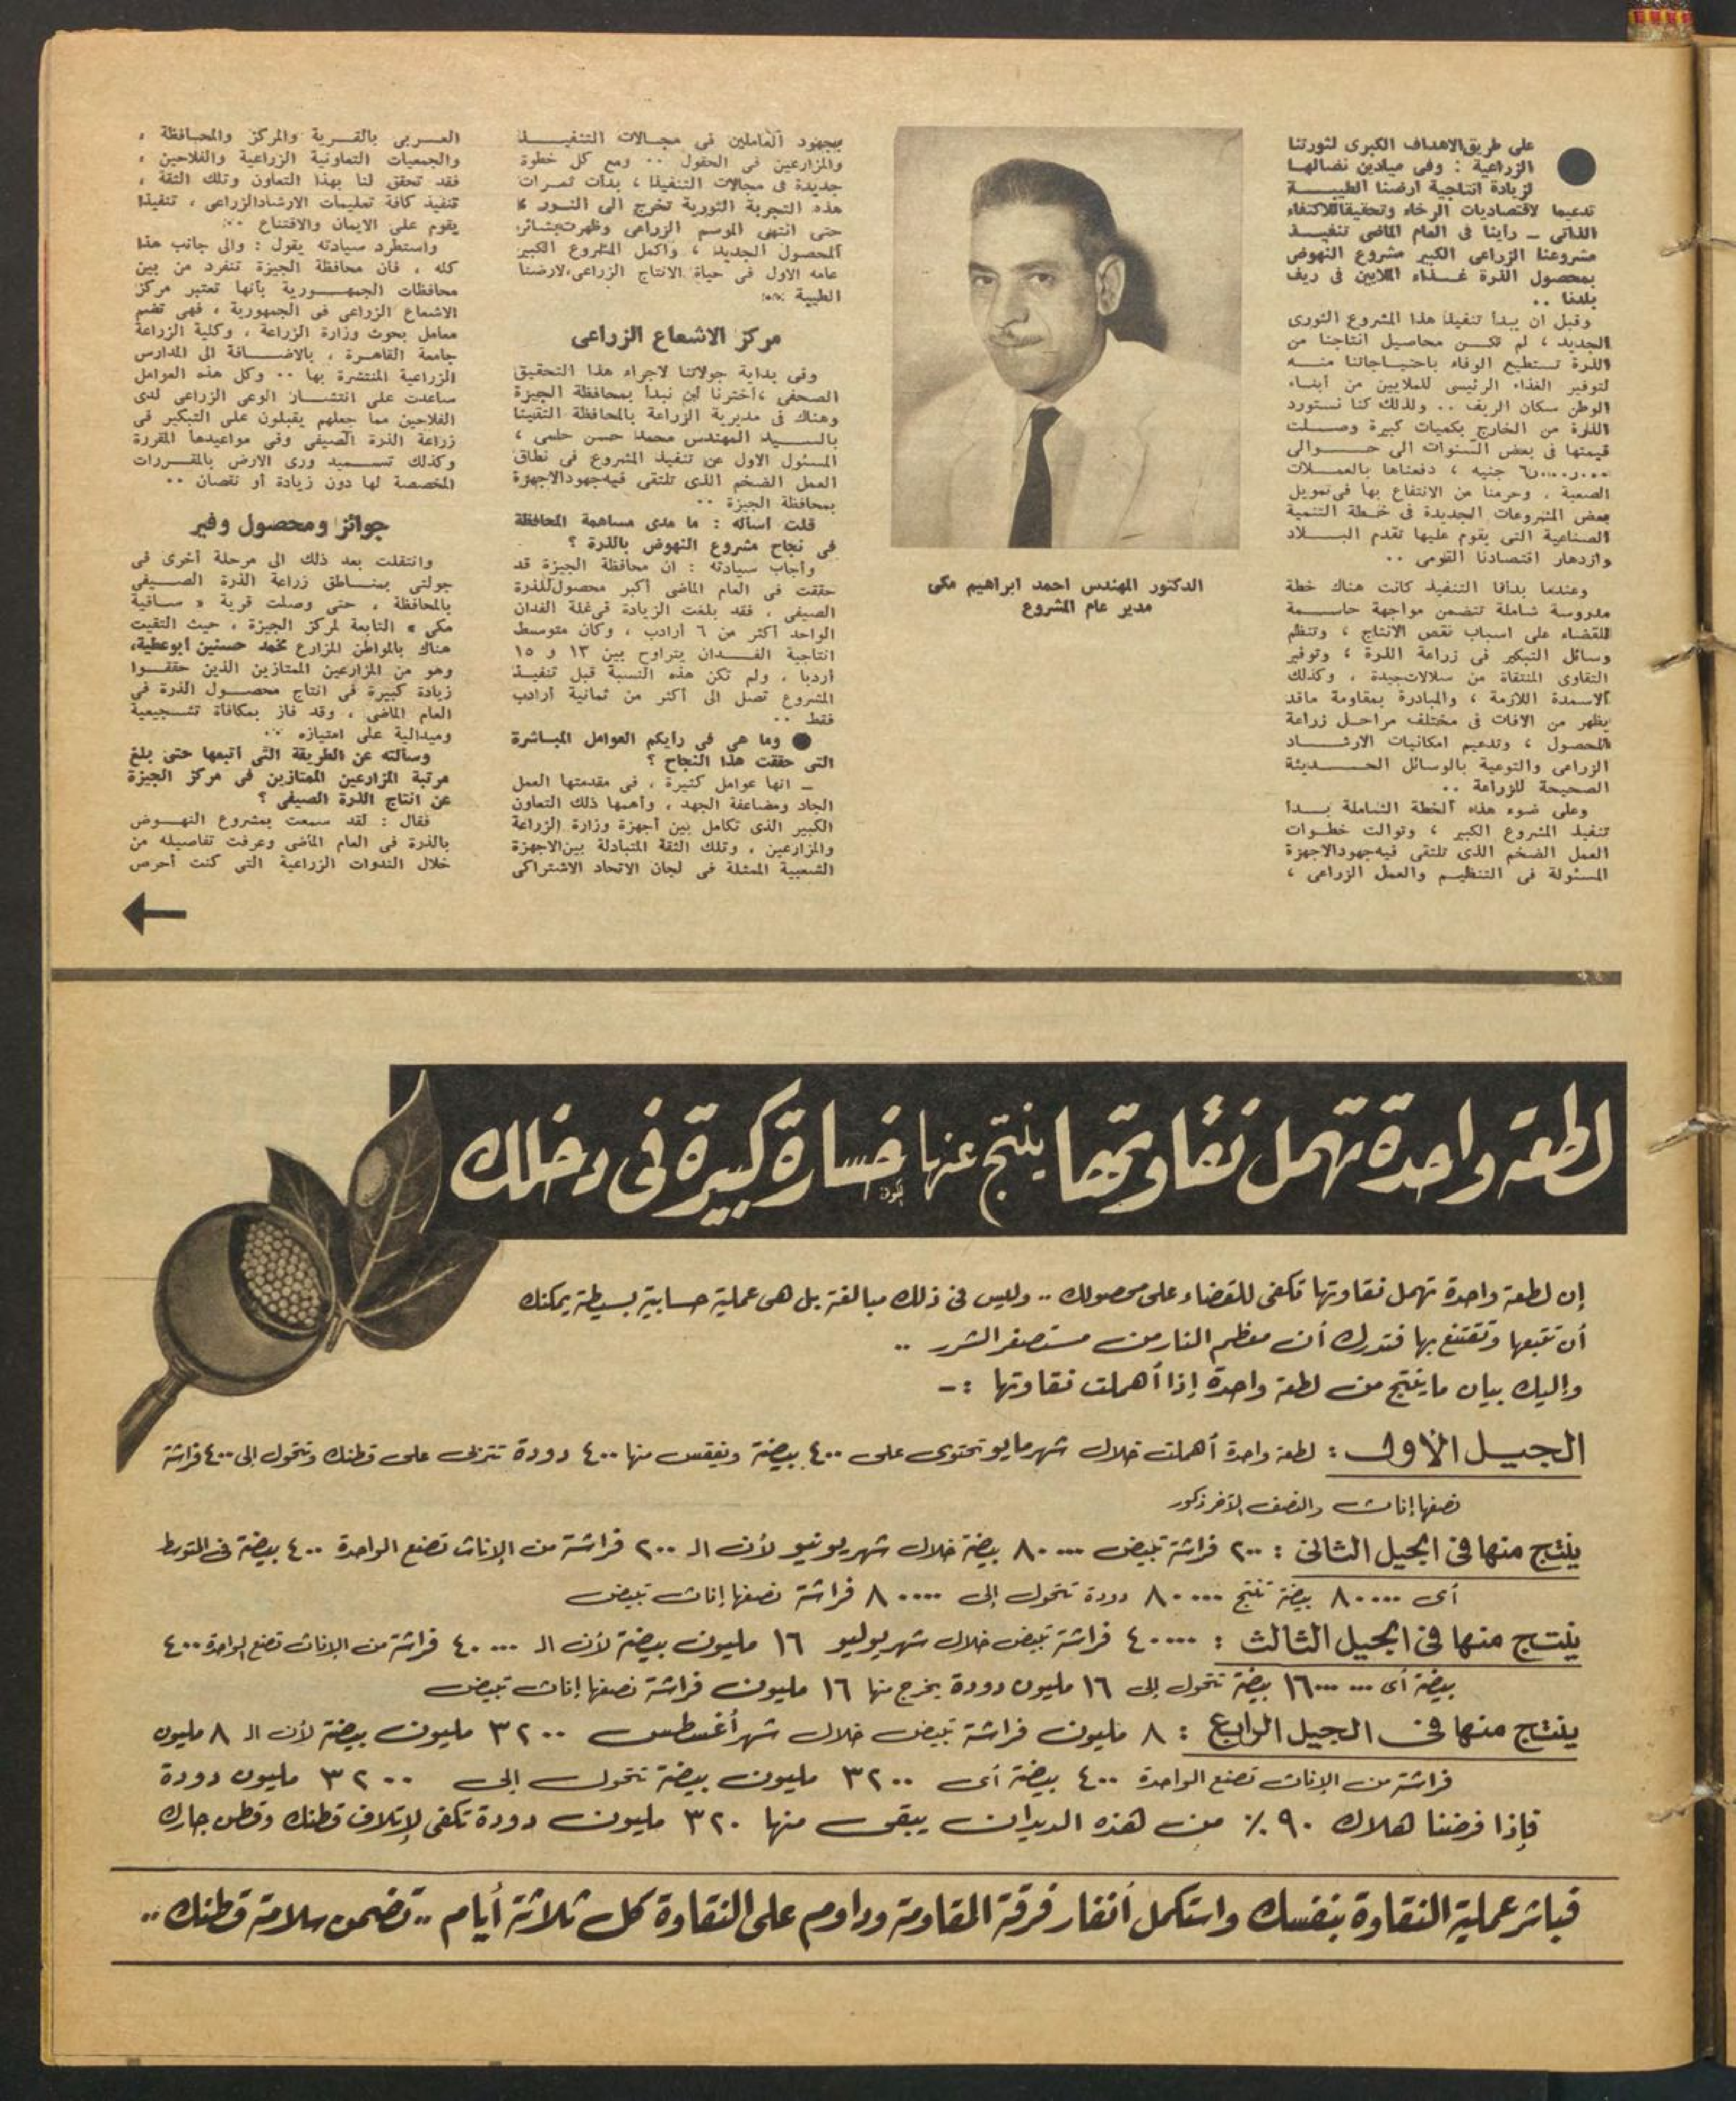 على طريق الاهداف الكبرى لثورتنا
الزراعية : وفى ميادين نضالهـا
لزيادة انتاجية ارضنا الطيبـــة
تدعيما لاقتصاديات الرخاء وتحقيقا للاكتفاء
الذاتى ــ رأينا فى العام الماضى تنفيـــذ
مشروعنا الزراعى الكبير مشروع النهوض
بمحصول الذرة غــذاء الملايين فى ريف
بلدنا ..
وقبل ان يبدأ تنفيذ هذا المشروع الثورى
الجديد ، لم تكـــن محاصيل انتاجنا من
الذرة تستطيع الوفاء باحتيـاجاتنا منـــه
لتوفير الغذاء الرئيسى للملايين من أبنـاء
الوطن سكان الريف .. ولذلك كنا نستورد
الذرة من الخارج بكميات كبيرة وصـــلت
قيمتها فى بعض السنوات الى حـــوالى
جنيه ، دفعناها بالعمـــلات
الصعبة ، وحرمنا من الانتفاع بها فى تمويل
بعض المشروعات الجديدة فى خـطة التنمية
الصناعية التى يقوم عليها تقدم البـــلاد
وازدهار اقتصادنا القومى ..
وعندما بدأنا التنفيذ كانت هناك خطة
مدروسة شاملة تتضمن مواجهة حاســـمة
للقضاء على اسباب نقص الانتاج ، وتنظم
وسائل التبكير فى زراعة الذرة ، وتوفير
التقاوى المنتقاة من سلالات جيدة ، وكذلك
الاسمدة اللازمة ، والمبادرة بمقاومة ماقد
يظهر من الافات فى مختلف مراحـل زراعة
المحصول ، وتدعيم امكانيات الارشـــاد
الزراعى والتوعية بالوسائل الحـــديثة
الصحيحة للزراعة ..
وعلى ضوء هذه الخطة الشاملة بـــدأ
تنفيذ المشروع الكبير ، وتوالت خطـوات
العمل الضخم الذى تلتقى فيه جهود الاجهزة
المسئولة فى التنظيم والعمل الزراعى ،
الدكتور المهندس احمد ابراهيم مكى
مدير عام المشروع
بجهود العاملين فى مجـالات التنفيـــذ
والمزارعين فى الحقول .. ومع كل خطوة
جديدة فى مجالات التنفيذ ، بدأت ثمرات
هذه التجربة الثورية تخرج الى النـور
حتى انتهى الموسم الزراعى وظهرت بشائر
المحصول الجديد ، واكمل المشروع الكبير
عامه الاول فى حياة الانتاج الزراعى لارضنا
الطيبة
مركز الاشعاع الزراعى
وفى بداية جولاتنا لاجراء هذا التحقيق
الصحفى ، أخترنا أن نبدأ بمحافظة الجيزة
وهناك فى مديرية الزراعة بالمحافظة التقينا
بالســـيد المهندس محمد حسن حلمى ،
المسئول الاول عن تنفيذ المشروع فى نطاق
العمل الضخم الذى تلتقى فيه جهود الاجهزة
بمحافظة الجيزة ..
قلت أسأله : ما مدى مساهمة المحافظة
فى نجاح مشروع النهوض بالذرة ؟
وأجاب سيادته : ان محافظة الجيزة قد
حققت فى العام الماضى أكبر محصول للذرة
الصيفى ، فقد بلغت الزيادة فى غلة الفدان
الواحد أكثر من ٦ أرادب ، وكان متوسط
انتاجية الفــدان يتراوح بين ١٣ و ١٥
أردبا ، ولم تكن هذه النسبة قبل تنفيـذ
المشروع تصل الى أكثر من ثمانية أرادب
فقط ..
● وما هى فى رأيكم العوامل المبـاشرة
التى حققت هذا النجاح ؟
ــ انها عوامل كثيرة ، فى مقدمتها العمل
الجاد ومضاعفة الجهد ، وأهمها ذلك التعاون
الكبير الذى تكامل بين أجهزة وزارة الزراعة
والمزارعين ، وتلك الثقة المتبادلة بين الاجهزة
الشعبية الممثلة فى لجان الاتحاد الاشتراكى
العـــربى بالقـــرية والمركز والمحـافظة ،
والجمعيات التعاونية الزراعية والفلاحين ،
فقد تحقق لنا بهذا التعاون وتلك الثقة ،
تنفيذ كافة تعليمات الارشاد الزراعى ، تنفيذا
يقوم على الايمان والاقتناع ..
واستطرد سيادته يقول : والى جانب هذا
كله ، فان محافظة الجيزة تنفرد من بين
محافظات الجمهـــورية بأنها تعتبر مركز
الاشعاع الزراعى فى الجمهورية ، فهى تضم
معامل بحوث وزارة الزراعة ، وكلية الزراعة
جامعة القاهـرة ، بالاضـــافة الى المدارس
الزراعية المنتشرة بها .. وكل هذه العوامل
ساعدت على انتشـــار الوعى الزراعى لدى
الفلاحين مما جعلهم يقبلون على التبكير فى
زراعة الذرة الصيفى وفى مواعيدها المقررة
وكذلك تســـميد ورى الارض بالمقـــررات
المخصصة لها دون زيادة أو نقصان ..
جوائز ومحصول وفير
وانتقلت بعد ذلك الى مرحلة أخرى فى
جولتى بمنـــاطق زراعة الذرة الصـــيفى
بالمحافظة ، حتى وصلت قرية « ســاقية
مكى » التابعة لمركز الجيزة ، حيث التقيت
هناك بالمواطن المزارع محمد حسنين ابوعطية،
وهو من المزارعين الممتازين الذين حققــوا
زيادة كبيرة فى انتاج محصـــول الذرة فى
العام الماضى ، وقد فاز بمكافأة تشـجيعية
وميدالية على امتيازه ..
وسألته عن الطريقة التى اتبعها حتى بلغ
مرتبة المزارعين الممتازين فى مركز الجيزة
عن انتاج الذرة الصيفى ؟
فقال : لقد سمعت بمشروع النهـــوض
بالذرة فى العام الماضى وعرفت تفاصيله من
خلال الندوات الزراعية التى كنت أحرص
لطعة واحدة تهمل نقاوتها ينتج عنها خسارة كبيرة فى دخلك
إن لطعة واحدة تهمل نقاوتها تكفى للقضاء على محصولك .. وليس فى ذلك مبالغة بل هى عملية حسابية بسيطة يمكنك
أن تتبعها وتقتنع بها فتدرك أن معظم النار من مستصغر الشرر ..
وإليك بيان ماينتج من لطعة واحدة إذا أهملت نقاوتها :ــ
الجيل الأول : لطعة واحدة أهملت خلال شهر مايو تحتوى على ٤٠٠ بيضة وتفقس منها ٤٠٠ دودة تتربى على قطنك وتتحول إلى ٤٠٠ فراشة
نصفها إناث والنصف الآخر ذكور
ينتج منها فى الجيل الثانى : ٢٠٠ فراشة تبيض ٨٠٠٠٠ بيضة خلال شهر يونيو لأن الـ ٢٠٠ فراشة من الإناث تضع الواحدة ٤٠٠ بيضة فى المتوسط
أى ٨٠٠٠٠ بيضة تنتج ٨٠٠٠٠ دودة تتحول إلى ٨٠٠٠٠ فراشة نصفها إناث تبيض
ينتج منها فى الجيل الثالث : ٤٠٠٠٠ فراشة تبيض خلال شهر يوليو ١٦ مليون بيضة لأن الـ ٤٠٠٠٠ فراشة من الإناث تضع الواحدة ٤٠٠
بيضة أى ١٦٠٠٠٠٠٠ بيضة تتحول إلى ١٦ مليون دودة يخرج منها ١٦ مليون فراشة نصفها إناث تبيض
ينتج منها فى الجيل الرابع : ٨ مليون فراشة تبيض خلال شهر أغسطس ٣٢٠٠ مليون بيضة لأن الـ ٨ مليون
فراشة من الإناث تضع الواحدة ٤٠٠ بيضة أى ٣٢٠٠ مليون بيضة تتحول إلى ٣٢٠٠ مليون دودة
فإذا فرضنا هلاك ٩٠٪ من هذه الديدان يبقى منها ٣٢٠ مليون دودة تكفى لإتلاف قطنك وقطن جارك
فباشر عملية النقاوة بنفسك واستكمل أنفار فرقة المقاومة وداوم على النقاوة كل ثلاثة أيام .. تضمن سلامة قطنك ..